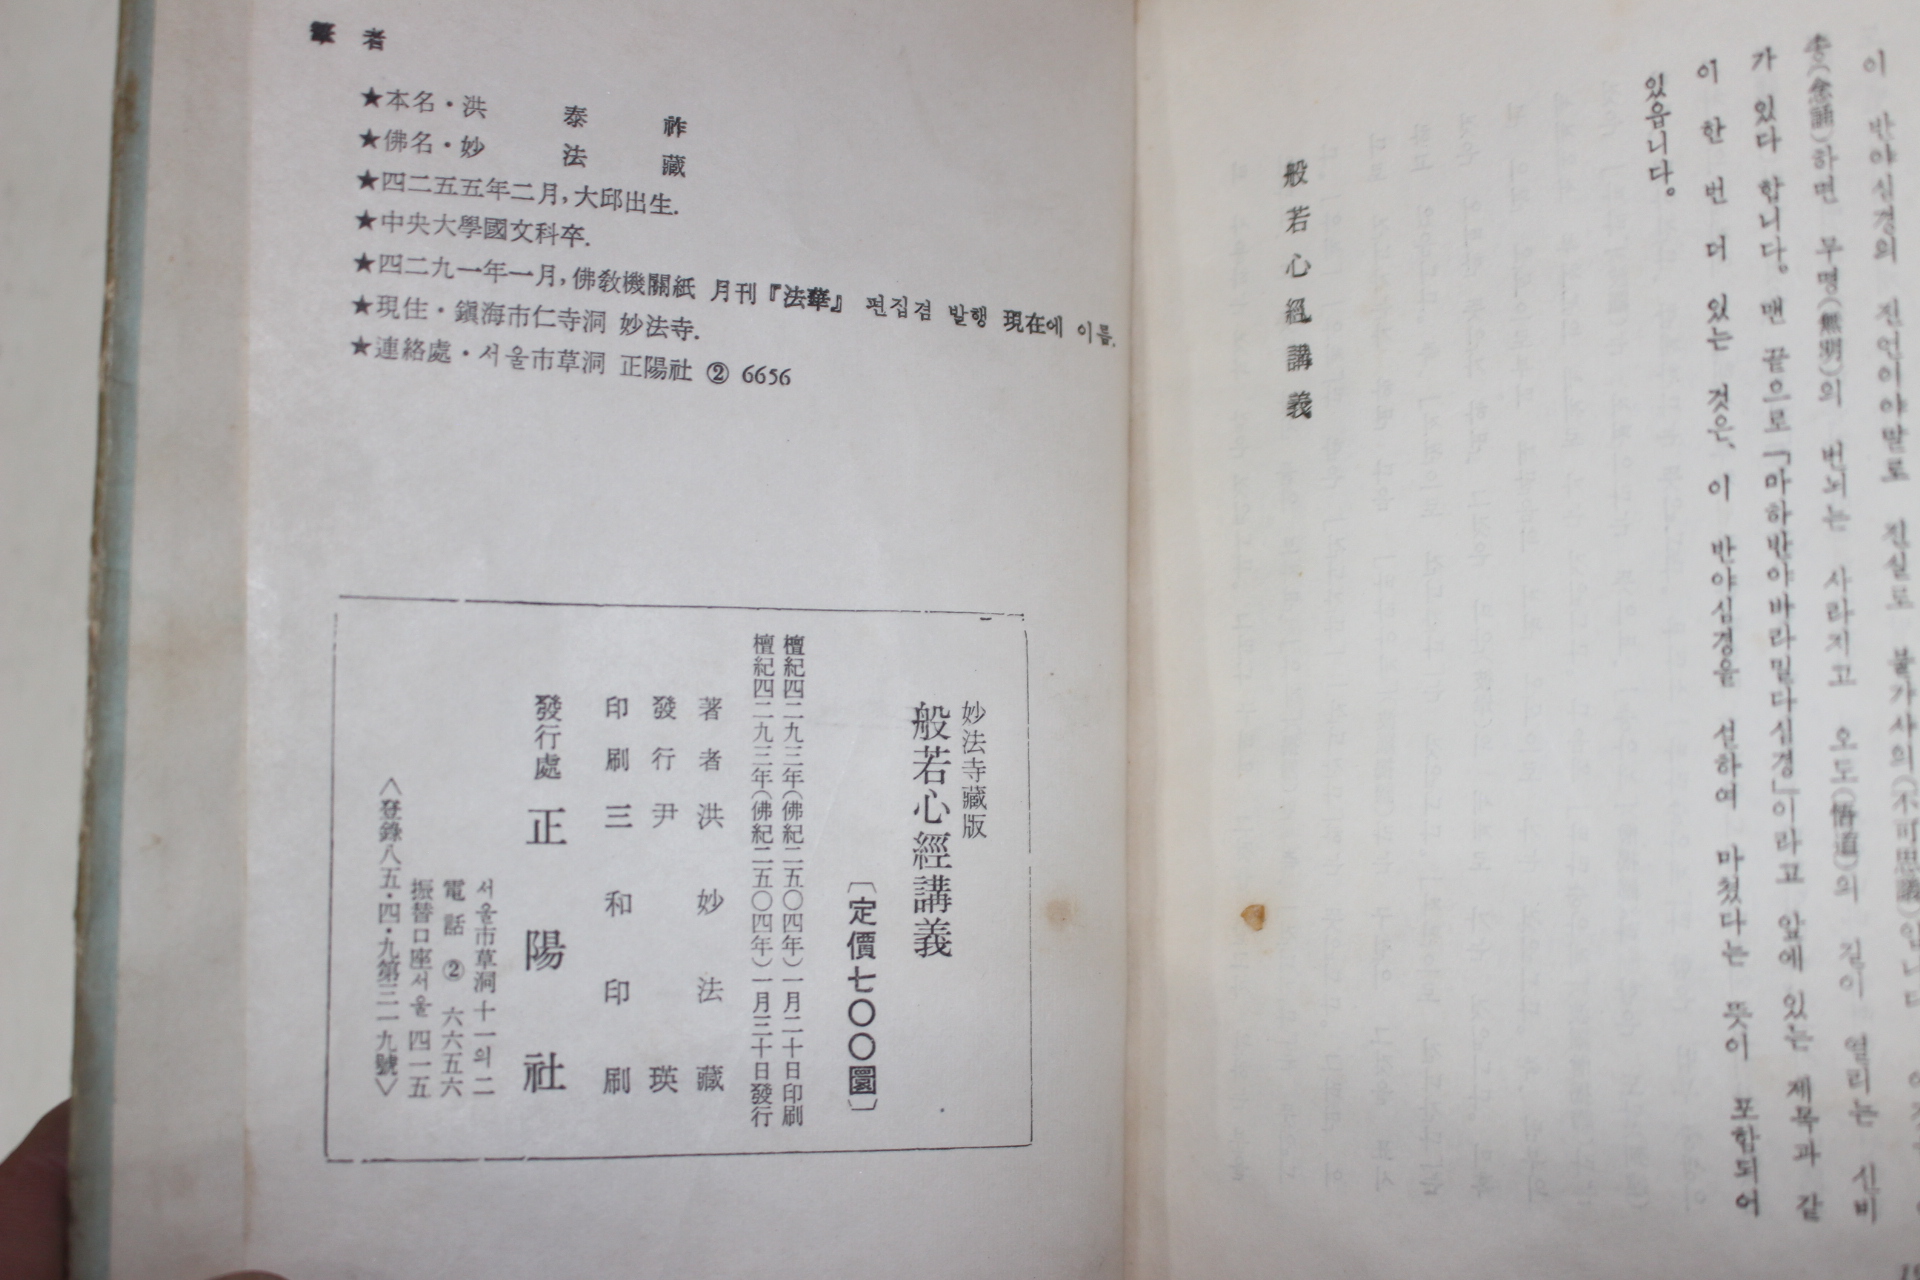 筆者
★本名・洪泰祚
★佛名・妙法藏
★四二五五年二月, 大邱出生.
★中央大學國文科卒.
★四二九一年一月, 佛教機關紙 月刊『法華』 편집겸 발행 現在에 이름.
★現住・鎭海市仁寺洞 妙法寺.
★連絡處・서울市草洞 正陽社 ② 6656
妙法寺藏版
般若心經講義
〔定價七〇〇圜〕
檀紀四二九三年(佛紀二五〇四年)一月二十日印刷
檀紀四二九三年(佛紀二五〇四年)一月三十日發行
著者 洪妙法藏
發行 尹瑛
印刷 三和印刷
發行處 正陽社
서울市草洞十一의二
電話 ② 六六五六
振替口座서울 四一五
<登錄八五・四・九第三一九號>
이 반야심경의 진언이야말로 진실로 불가사의(不可思議)입니다
송(念誦)하면 무명(無明)의 번뇌는 사라지고 오도(悟道)의 길이 열리는 신비
가 있다 합니다. 맨 끝으로 「마하반야바라밀다심경」이라고 앞에 있는 제목과 같
이 한 번 더 있는 것은, 이 반야심경을 설하여 마쳤다는 뜻이 포함되어
있읍니다.
般若心經講義